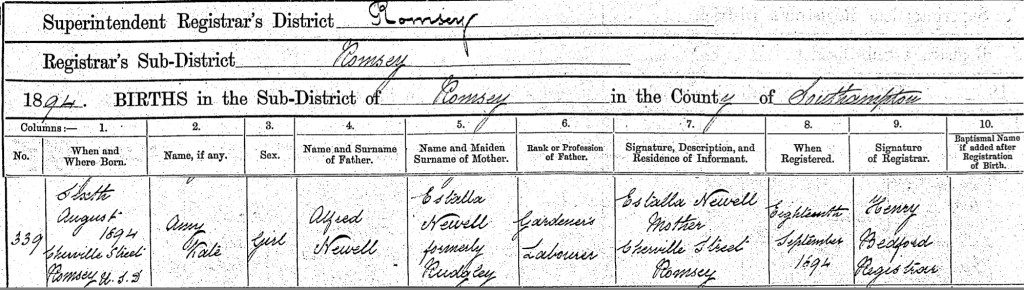 Superintendent Registrar's District Romsey
Registrar's Sub-District Romsey
1894. BIRTHS in the Sub-District of Romsey in the County of Southampton
Columns:— 1. 2. 3. 4. 5. 6. 7. 8. 9. 10.
No. When and Where Born. Name, if any. Sex. Name and Surname of Father. Name and Maiden Surname of Mother. Rank or Profession of Father. Signature, Description, and Residence of Informant. When Registered. Signature of Registrar. Baptismal Name if added after Registration of Birth.
339
Sixth
August
1894
Cherville Street
Romsey U.S.D
Amy
Kate
Girl
Alfred
Newell
Estalla
Newell
formerly
Rudgley
Gardener's
Labourer
Estalla Newell
Mother
Cherville Street
Romsey
Eighteenth
September
1894
Henry
Bedford
Registrar